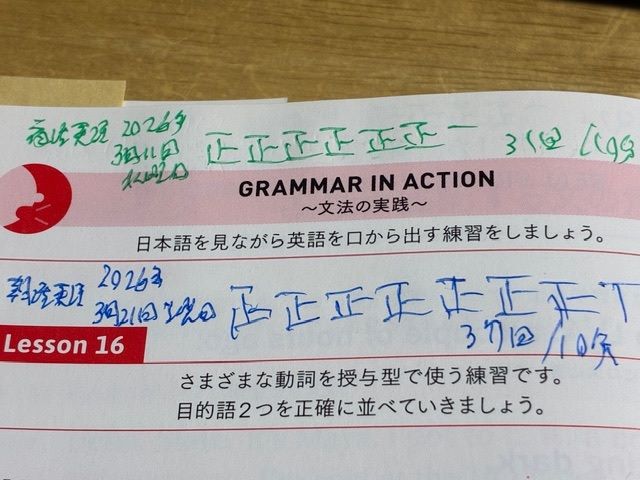 2026年
3月11日
正正正正正正一 31回
GRAMMAR IN ACTION
〜文法の実践〜
日本語を見ながら英語を口から出す練習をしましょう。
2026年
3月21日
正正正正正正正
37回 110点
Lesson 16
さまざまな動詞を授与型で使う練習です。
目的語2つを正確に並べていきましょう。